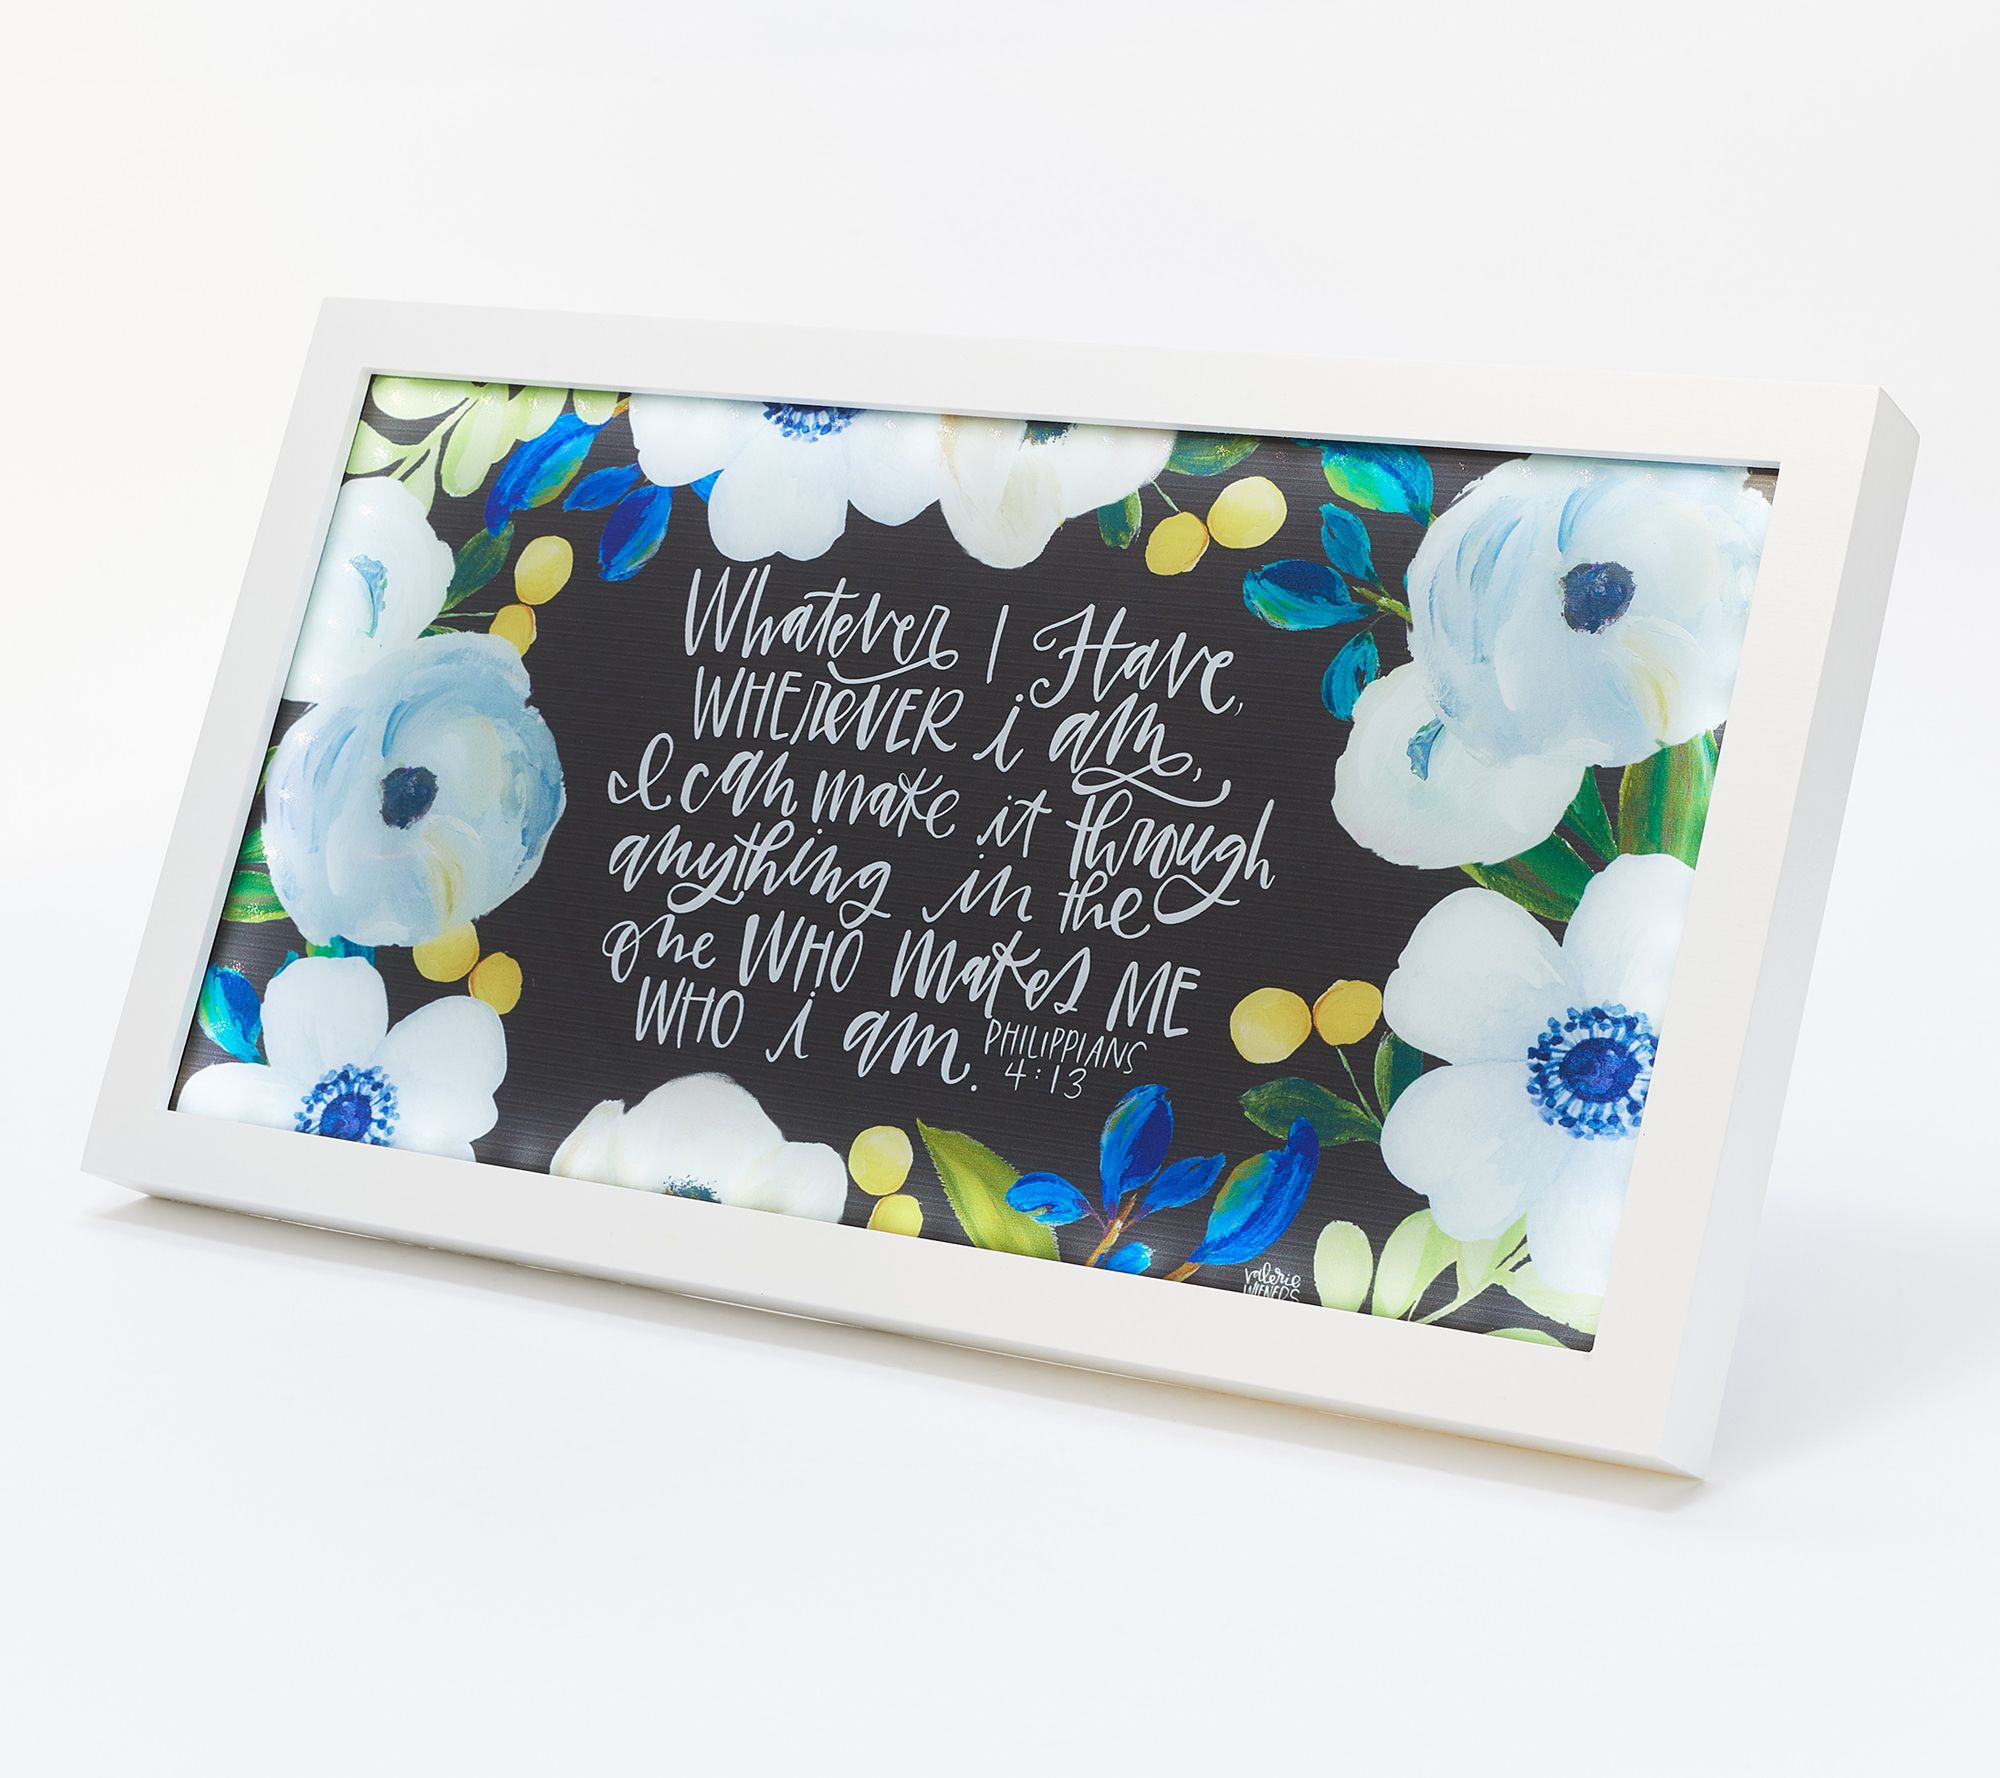 Whatever I Have,
WHEREVER i am,
I can make it through
anything in the
one WHO makes ME
WHO i am. PHILIPPIANS
4:13
valerie
WIENERS